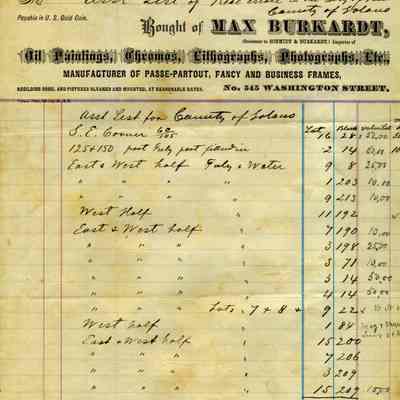 Payable in U. S. Gold Coin.
County of Solano
Bought of MAX BURKARDT,
(Successor to SCHMIDT & BURKARDT,) Importer of
Oil Paintings, Chromos, Lithographs, Photographs, Etc.,
MANUFACTURER OF PASSE-PARTOUT, FANCY AND BUSINESS FRAMES,
MOULDING DONE, AND PICTURES CLEANED AND MOUNTED, AT REASONABLE RATES. No. 545 WASHINGTON STREET,
Asst List for County of Solano
S. E. Corner Lot Block
125 x 150 part 2 14
East & West half & Water 9 8 25.00
" " " " 1 203 10.00
" " " 9 213 10.00
West Half " 11 192
East & West half " 7 190 10.00
" " " " 3 198 25.00
" " " " 3 71 10.00
" " " " 3 14 50.00
" " " " 4 14 50.00
" " " Lots 7 + 8 + 9 22
West half " 1 84
East & West half " 15 200
" " " " 7 206
" " " " 3 209
" " " " 15 209